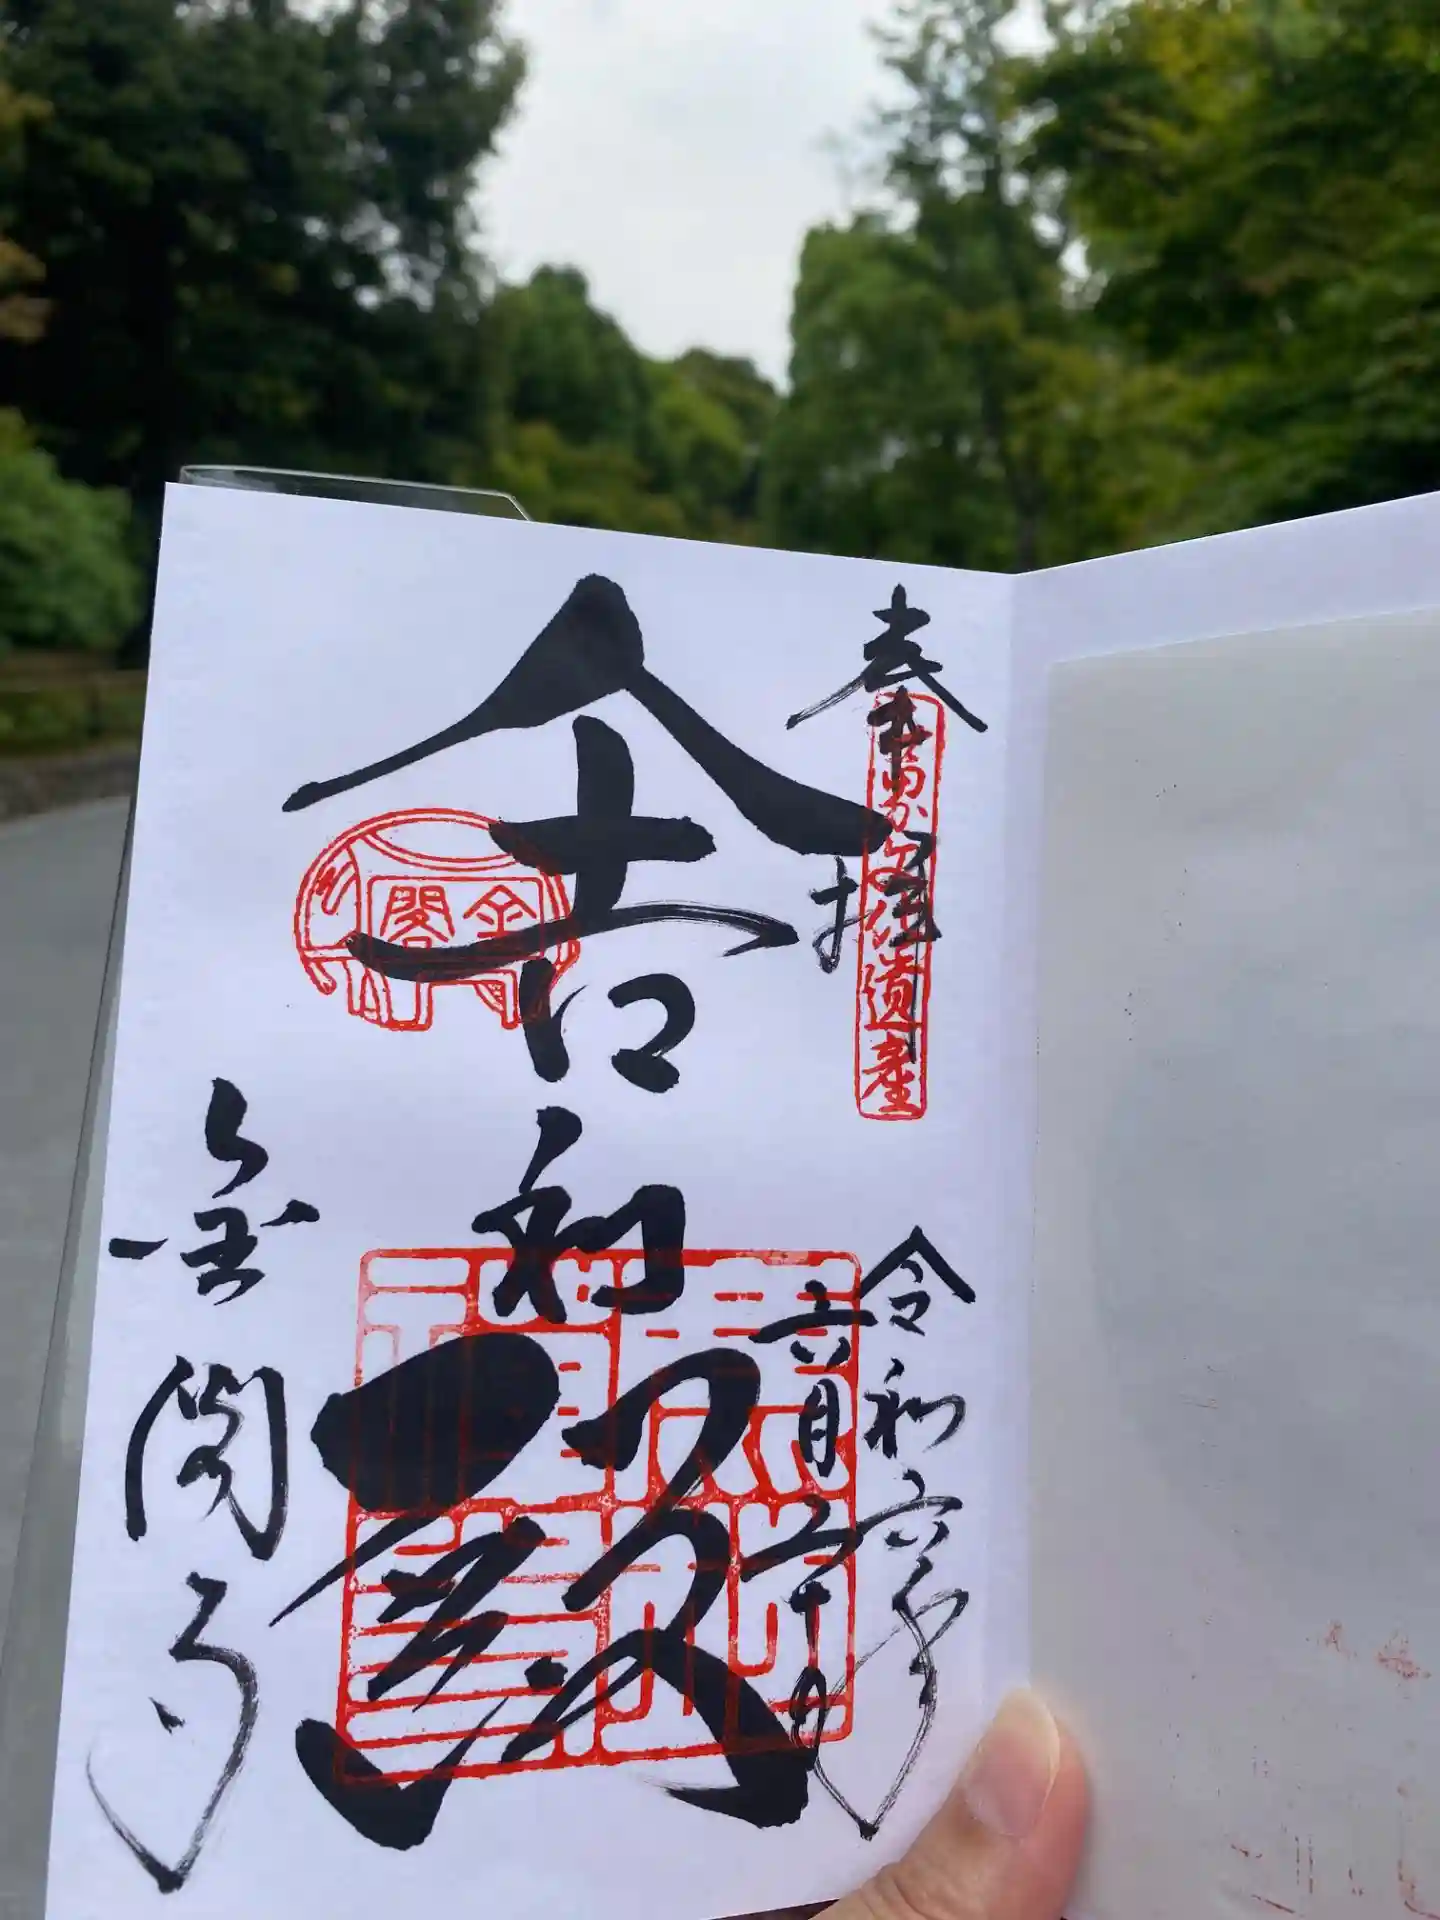 奉拝
世界文化遺産
令和六年
六月二十日
舎利殿
金閣
金閣寺